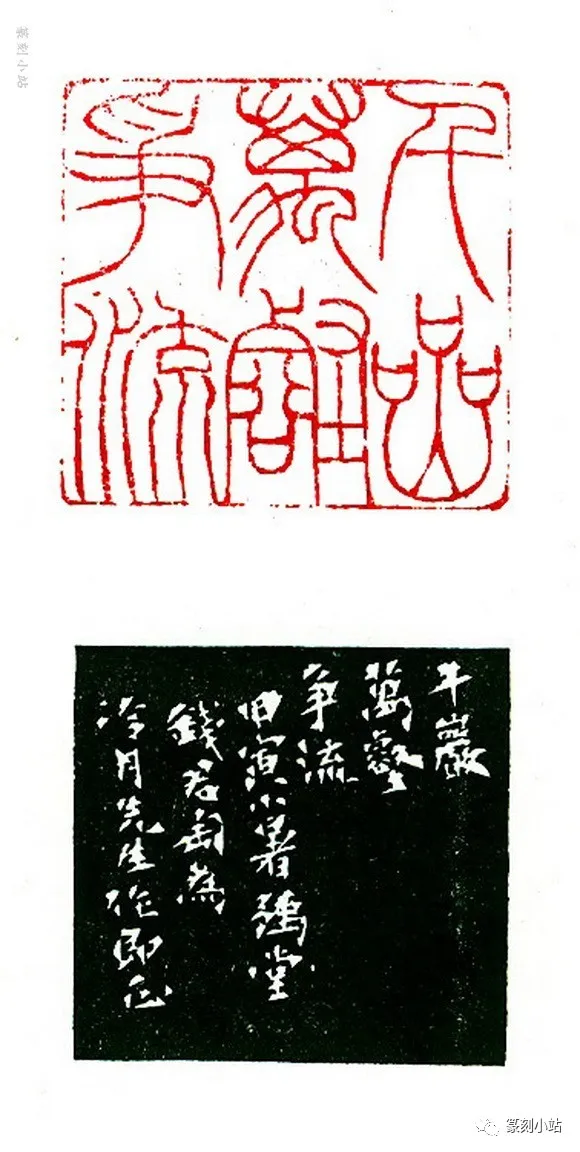 篆刻小站
千喦
萬壑
爭流
千巖
萬壑
争流
寅小暑豫堂
錢君匋為
冷月先生作即正
篆刻小站